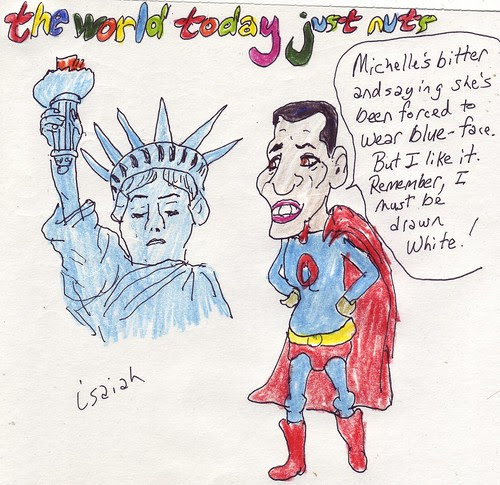 the world today just nuts
Michelle's bitter
and saying she's
been forced to
wear blue-face.
But I like it.
Remember, I
must be
drawn
White.!
O
isaiah